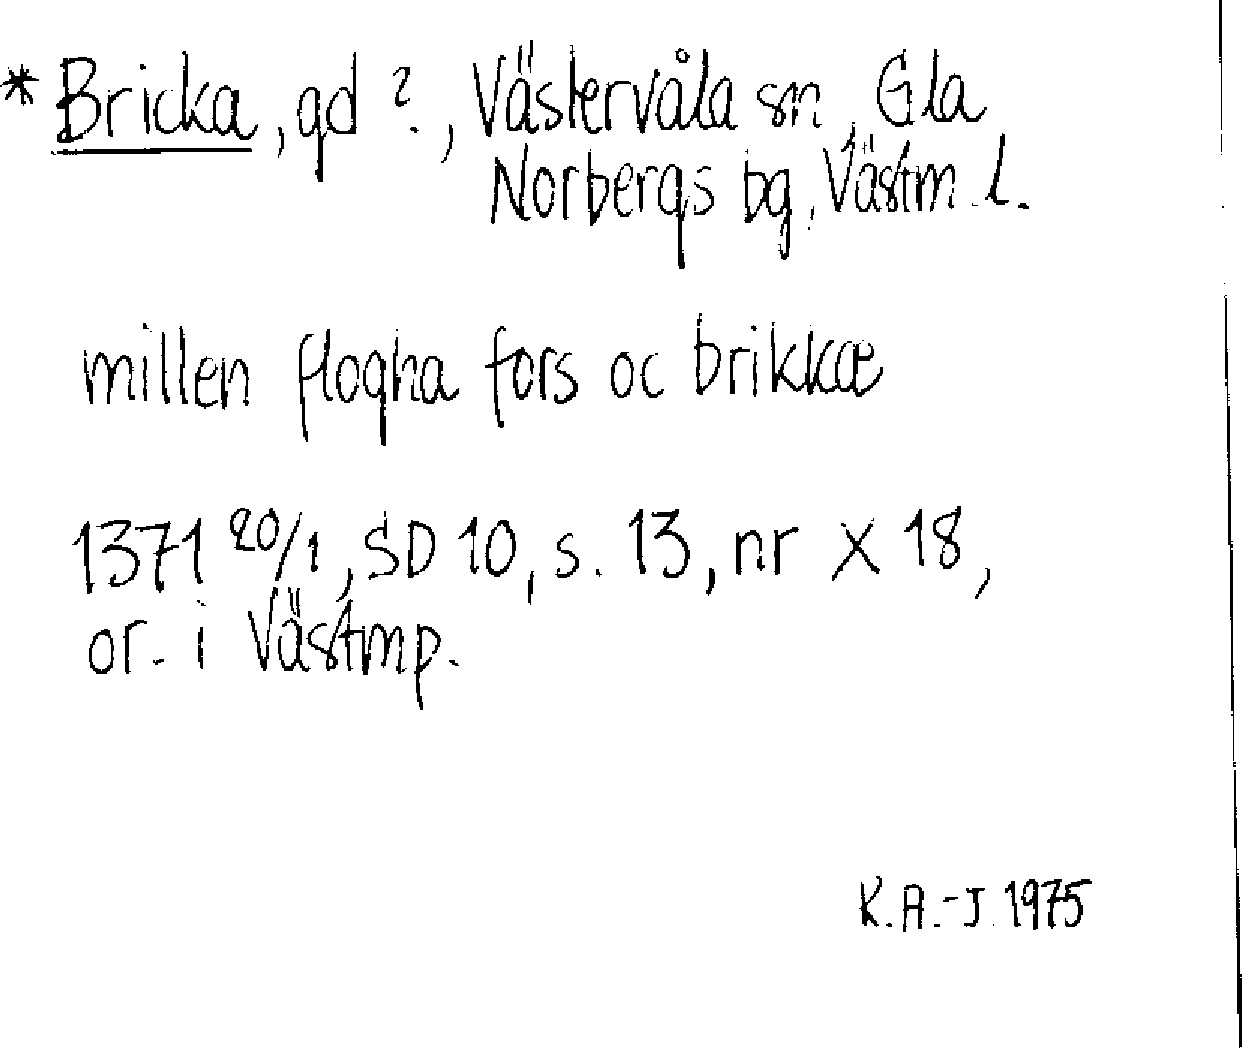 * Bricka, gd ?, Västervåla sn, Gla
Norbergs bg, Västm. l.
millen flogha fors oc brikkæ
1371 20/1, SD 10, s. 13, nr X 18,
or. i Västmp.
K.A.-J. 1975